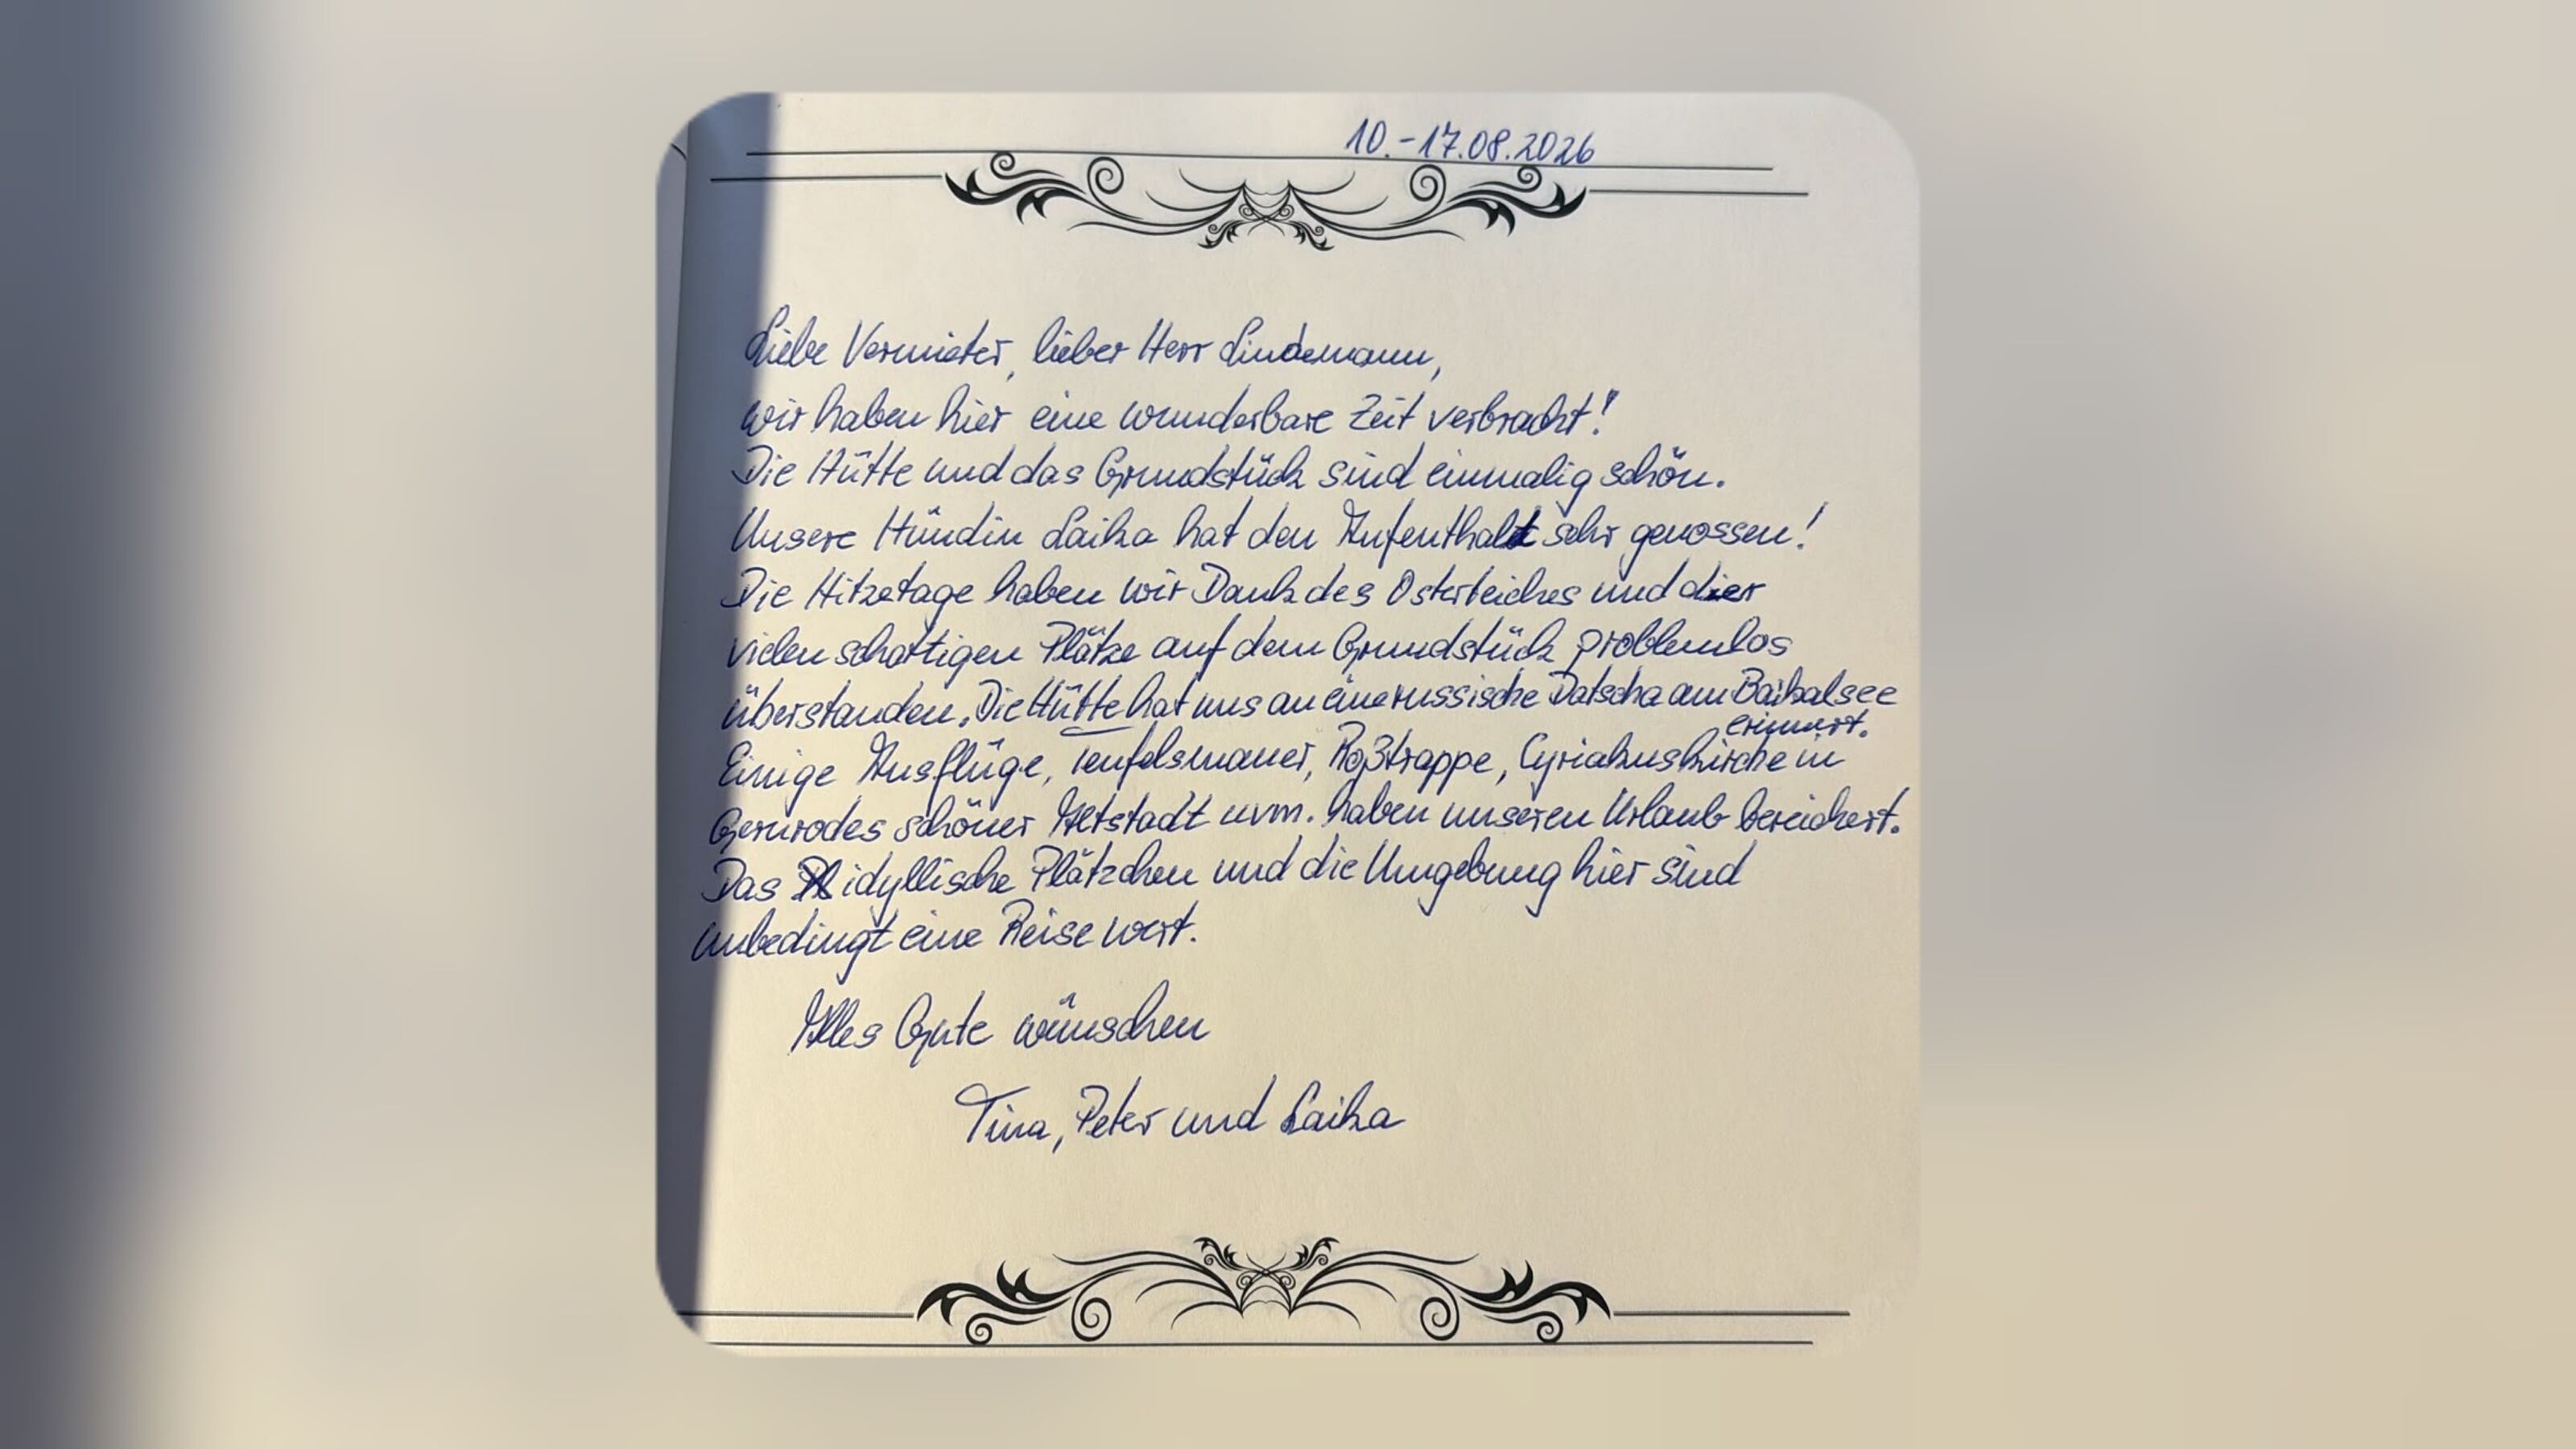 10.-17.08.2026
Liebe Vermieter, lieber Herr Lindemann,
wir haben hier eine wunderbare Zeit verbracht!
Die Hütte und das Grundstück sind einmalig schön.
Unsere Hündin Laika hat den Aufenthalt sehr genossen!
Die Hitzetage haben wir Dank des Osterteiches und der
vielen schattigen Plätze auf dem Grundstück problemlos
überstanden. Die Hütte hat uns an eine russische Datscha am Baikalsee
erinnert.
Einige Ausflüge, Teufelsmauer, Roßtrappe, Cyriakuskirche in
Gernrodes schöner Altstadt uvm. haben unseren Urlaub bereichert.
Das idyllische Plätzchen und die Umgebung hier sind
unbedingt eine Reise wert.
Alles Gute wünschen
Tina, Peter und Laika